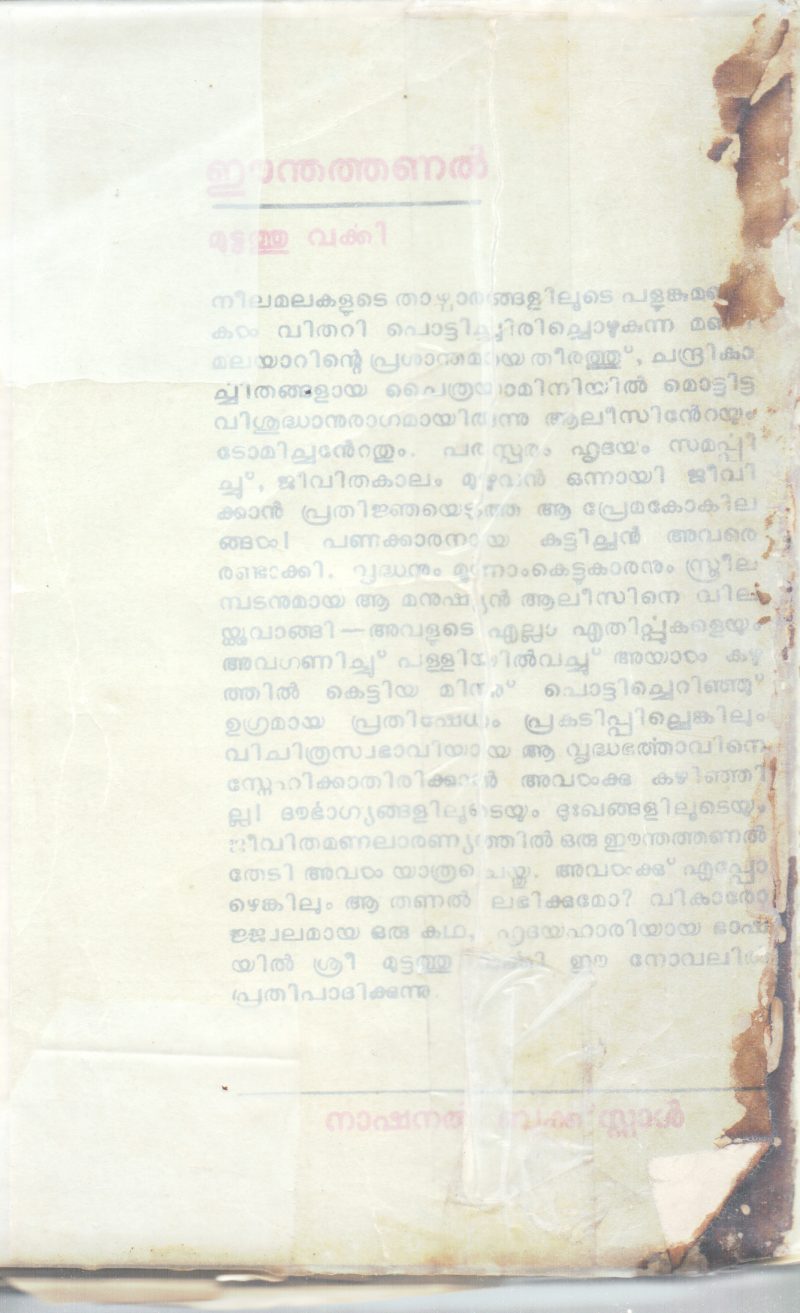 ഈന്തത്തണൽ
മുട്ടത്തു വർക്കി
നീലമലകളുടെ താഴ്വാരങ്ങളിലൂടെ പളുങ്കുമണി
കൾ വിതറി പൊട്ടിച്ചിരിച്ചൊഴുകുന്ന മണി
മലയാറിന്റെ പ്രശാന്തമായ തീരത്തു്, ചന്ദ്രികാ
ച്ചിതങ്ങളായ ചൈത്രയാമിനിയിൽ മൊട്ടിട്ട
വിശുദ്ധാനുരാഗമായിരുന്നു ആലീസിൻേറയും
ടോമിച്ചൻേറതും. പരസ്പരം ഹൃദയം സമർപ്പി
ച്ചു്, ജീവിതകാലം മുഴുവൻ ഒന്നായി ജീവി
ക്കാൻ പ്രതിജ്ഞയെടുത്ത ആ പ്രേമകോകില
ങ്ങൾ! പണക്കാരനായ കുട്ടിച്ചൻ അവരെ
രണ്ടാക്കി. വൃദ്ധനും മൂന്നാംകെട്ടുകാരനും സ്ത്രീല
മ്പടനുമായ ആ മനുഷ്യൻ ആലീസിനെ വില
യ്ക്കുവാങ്ങി—അവളുടെ എല്ലാ എതിർപ്പുകളെയും
അവഗണിച്ചു് പള്ളിയിൽവച്ചു് അയാൾ കഴു
ത്തിൽ കെട്ടിയ മിന്നു് പൊട്ടിച്ചെറിഞ്ഞു്
ഉഗ്രമായ പ്രതിഷേധം പ്രകടിപ്പില്ലെങ്കിലും
വിചിത്രസ്വഭാവിയായ ആ വൃദ്ധഭർത്താവിനെ
സ്നേഹിക്കാതിരിക്കുവാൻ അവൾക്കു കഴിഞ്ഞി
ല്ല! ദൗർഭാഗ്യങ്ങളിലൂടെയും ദുഃഖങ്ങളിലൂടെയും
ജീവിതമണലാരണ്യത്തിൽ ഒരു ഈന്തത്തണൽ
തേടി അവൾ യാത്രചെയ്തു. അവൾക്കു് എപ്പോ
ഴെങ്കിലും ആ തണൽ ലഭിക്കുമോ? വികാരോ
ജ്ജ്വലമായ ഒരു കഥ, ഹൃദയഹാരിയായ ഭാഷ
യിൽ ശ്രീ മുട്ടത്തു വർക്കി ഈ നോവലിൽ
പ്രതിപാദിക്കുന്നു.
നാഷനൽ ബുക്ക് സ്റ്റാൾ